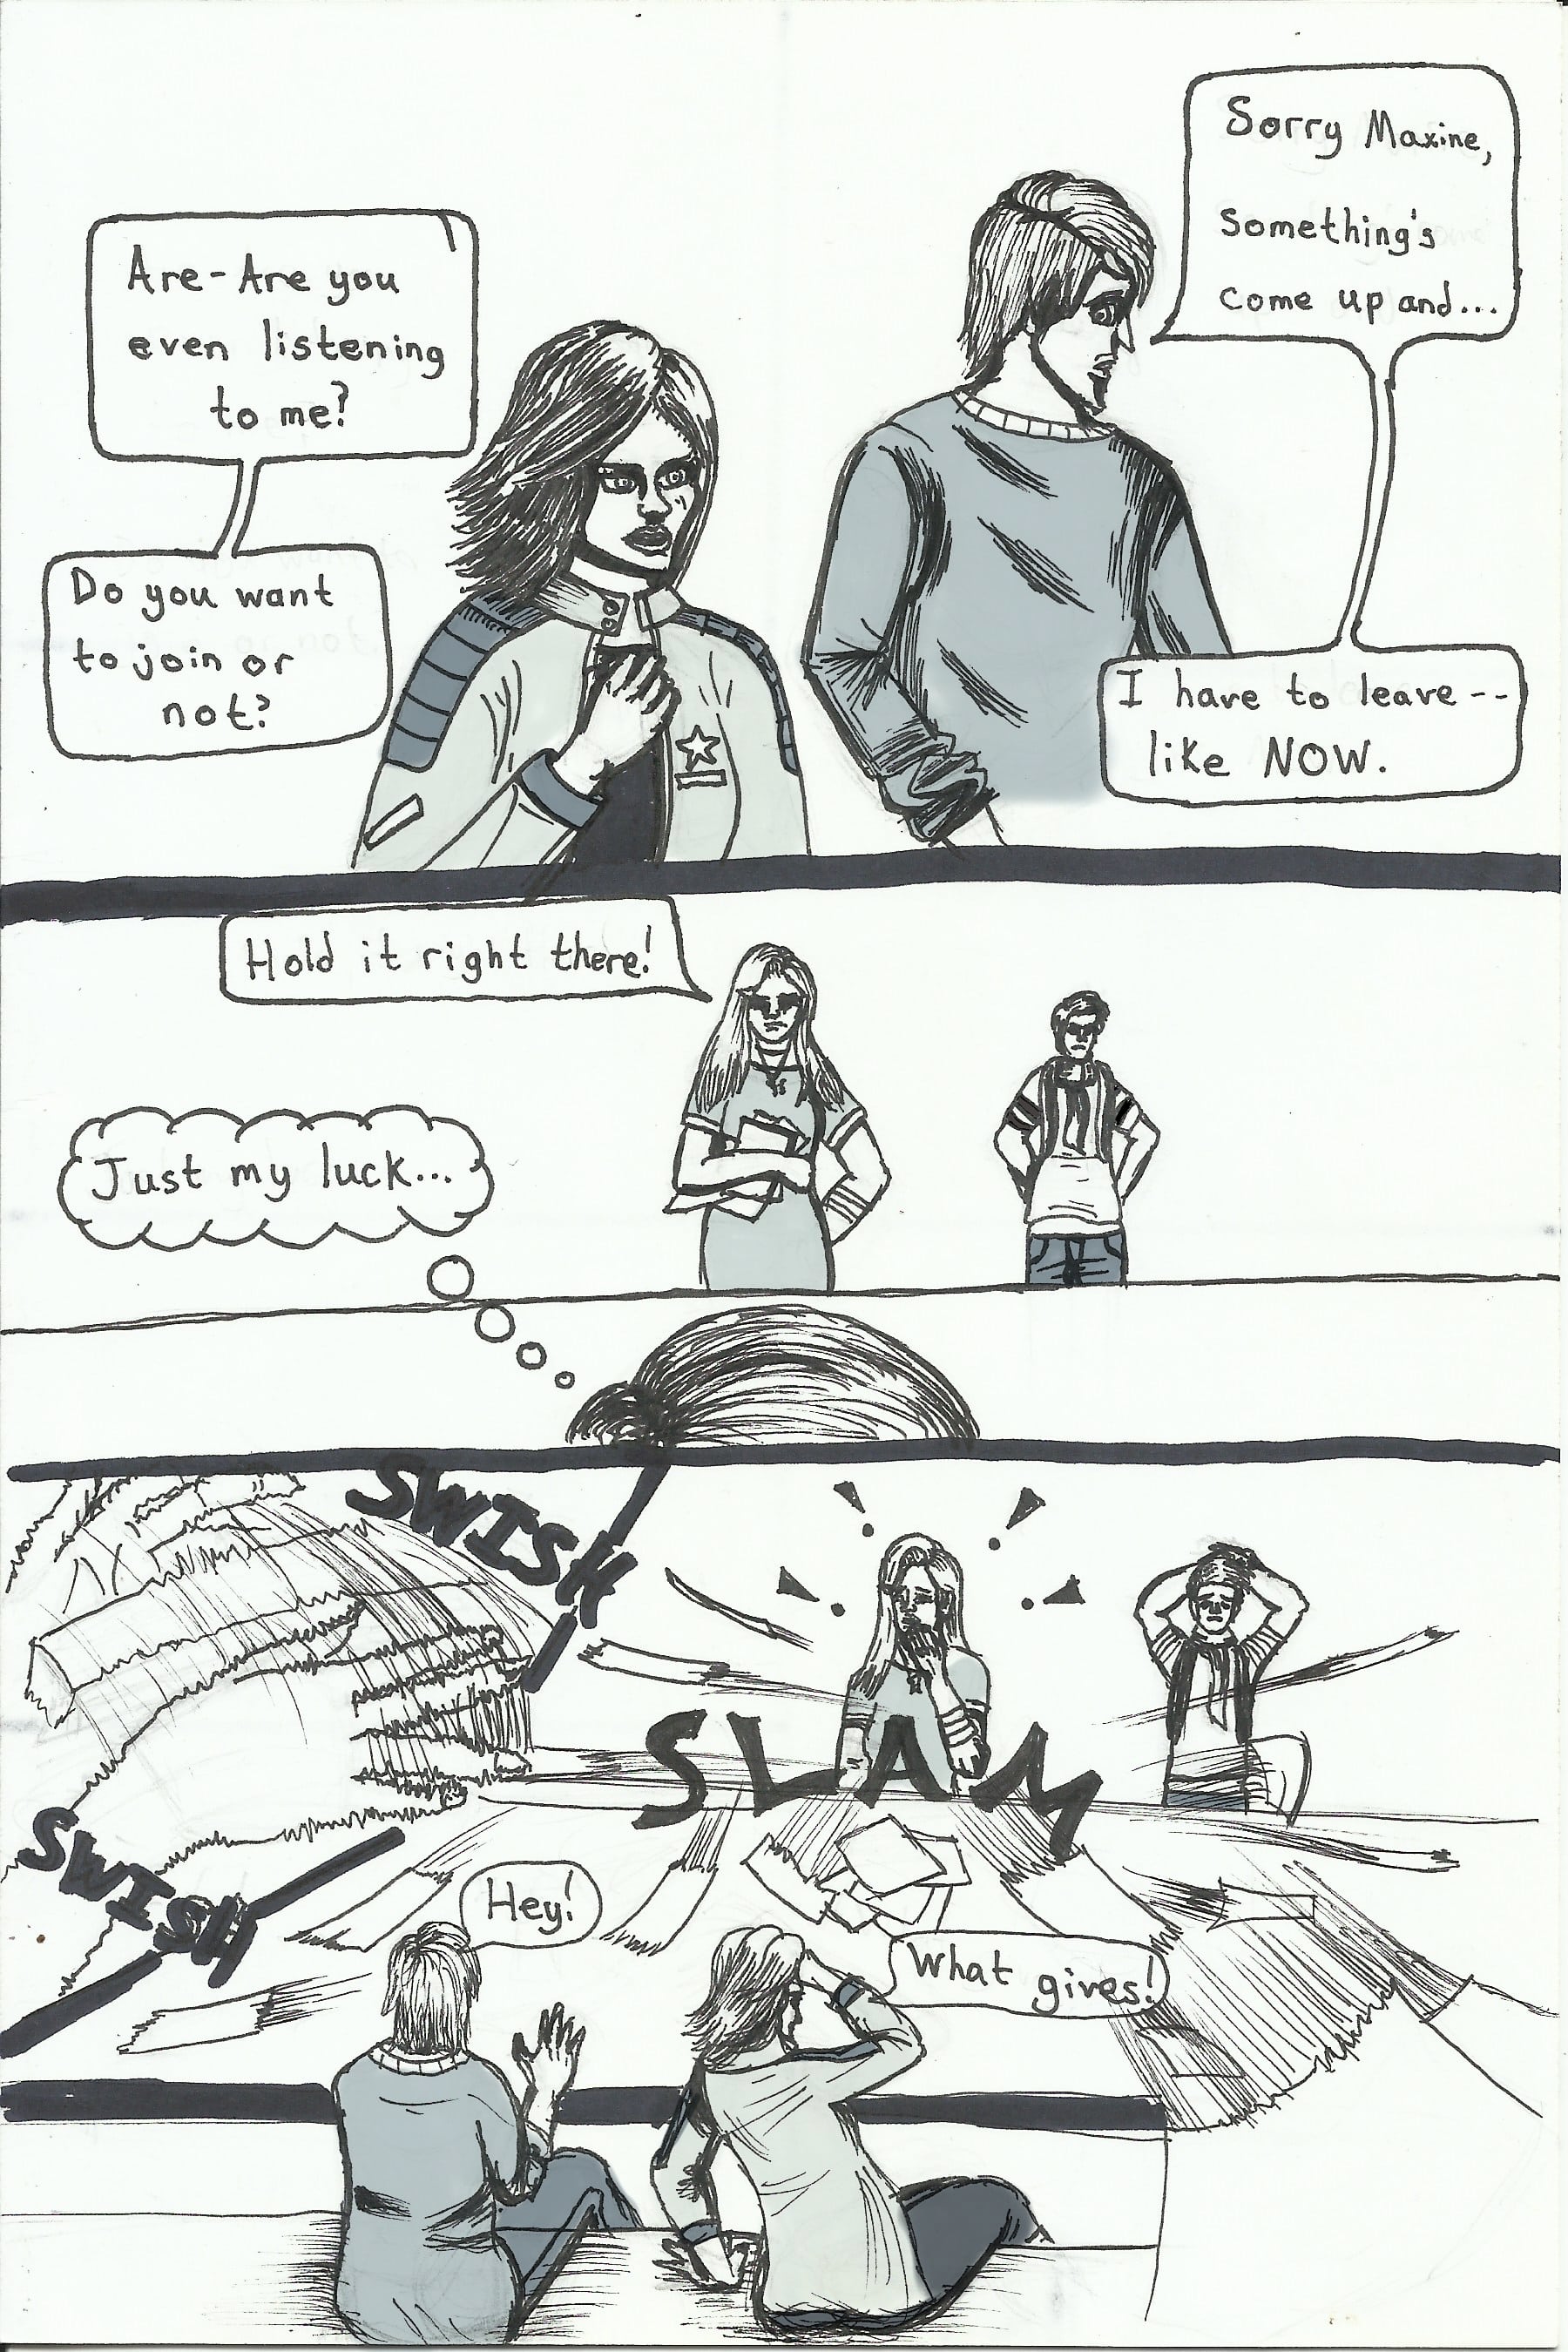 Are-Are you
even listening
to me?
Do you want
to join or
not?
Sorry Maxine,
something's
come up and...
I have to leave --
like NOW.
Hold it right there!
Just my luck...
SWISH
SLAM
SWISH
Hey!
What gives!